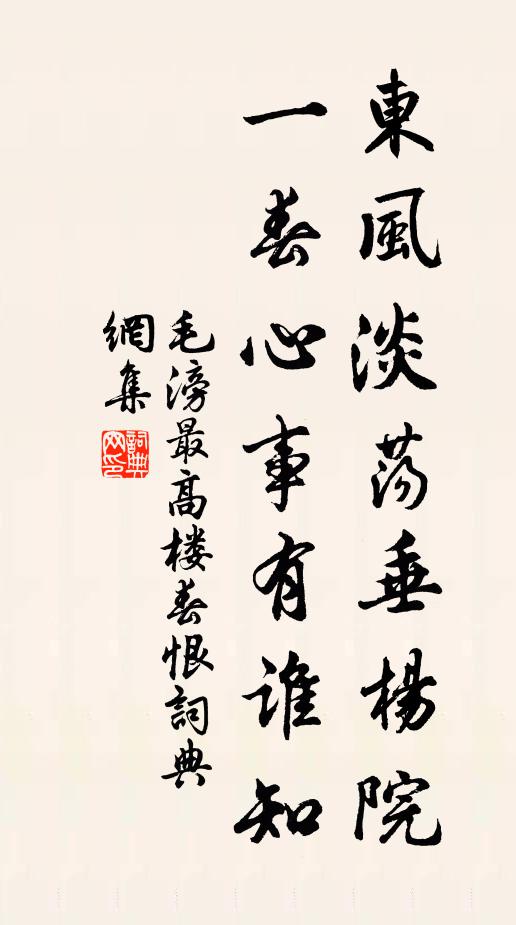 東風淡蕩垂楊院
一春心事有誰知
毛滂最高楼春恨詞典
網集
詞典
网印